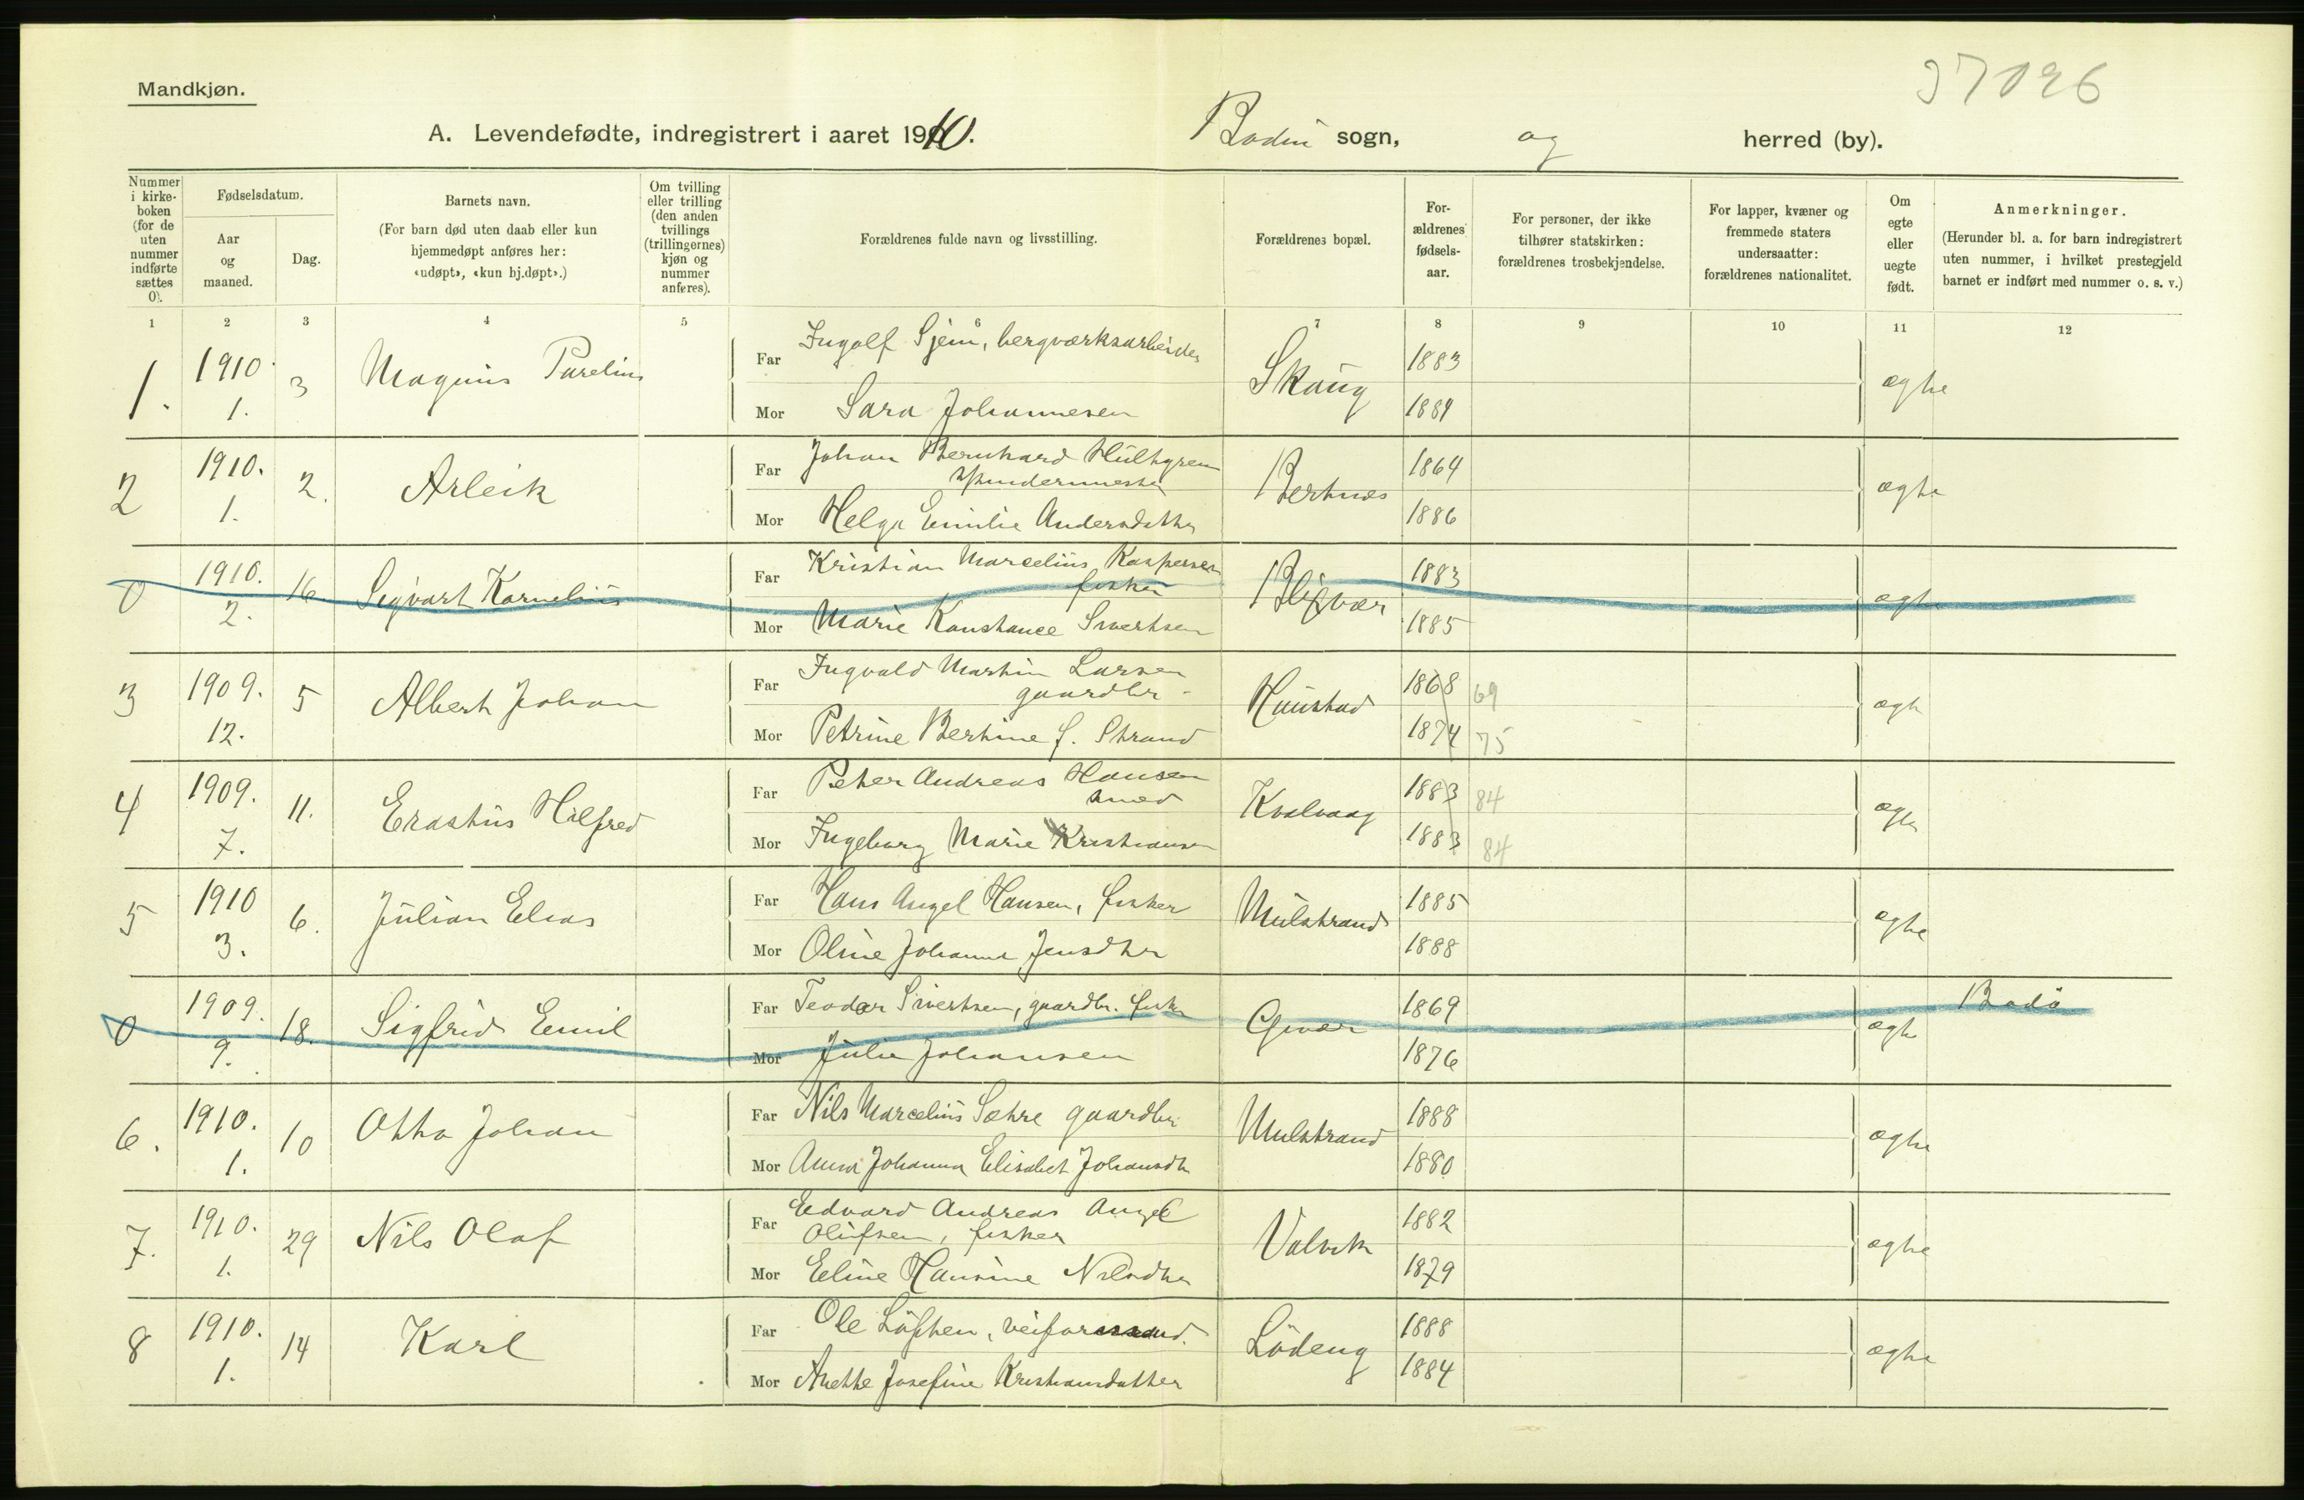 37026
Mandkjøn.
A. Levendefødte, indregistrert i aaret 1910. Bodin sogn, og herred (by).
Nummer i kirkeboken (for de uten nummer indførte sættes 0).
Fødselsdatum.
Aar og maaned.
Dag.
Barnets navn.
(For barn død uten daab eller kun hjemmedøpt anføres her: «udøpt», «kun hj.døpt».)
Om tvilling eller trilling (den anden tvillings (trillingernes) kjøn og nummer anføres).
Forældrenes fulde navn og livsstilling.
Forældrenes bopæl.
Forældrenes fødselsaar.
For personer, der ikke tilhører statskirken: forældrenes trosbekjendelse.
For lapper, kvæner og fremmede staters undersaatter: forældrenes nationalitet.
Om egte eller uegte født.
Anmerkninger.
(Herunder bl. a. for barn indregistrert uten nummer, i hvilket prestegjeld barnet er indført med nummer o. s. v.)
1 2 3 4 5 6 7 8 9 10 11 12
1. 1910. 1. 3 Magnus Parelius
Far Ingolf Sjem, bergværksarbeider Skaug 1883 ægte
Mor Sara Johannesen 1889
2 1910. 1. 2. Arleik
Far Johan Bernhard Hultgren Bertnes 1864 ægte
Mor Helga Emilie Andersdatter 1886
0 1910. 2. 16 Sigvart Kornelius
Far Kristian Marcelius Kaspersen fisker Bligvær 1883 ægte
Mor Marie Konstance Sivertsen 1885
3 1909. 12. 5 Albert Johan
Far Ingvald Martin Larsen gaardbr. Haustad 1868 69 ægte
Mor Petrine Bertine f. Strand 1874 75
4 1909. 7. 11. Erastus Hilfred
Far Peter Andreas Hansen smed Kvalvaag 1883 84 ægte
Mor Ingeborg Marie Kristiansen 1883 84
5 1910 3. 6. Julian Elias
Far Hans Angel Hansen, fisker Mulstrand 1885 ægte
Mor Oline Johanna Jensdtr 1888
0 1909. 9. 18. Sigfrid Emil
Far Teodor Sivertsen, gaardbr. fisker Givær 1869 ægte Bodø
Mor Julie Johansen 1876
6. 1910. 1. 10 Otto Johan
Far Nils Marcelius Sætre gaardbr. Mulstrand 1888 ægte
Mor Anna Johanna Elisabet Johansdtr 1880
7. 1910. 1. 29 Nils Olaf
Far Edvard Andreas Angel Olufsen, fisker Valvik 1882 ægte
Mor Eline Hansine Nilsdtr 1879
8 1910. 1. 14 Karl
Far Ole Løften, veiformand. Løding 1888 ægte
Mor Anette Josefine Kristiansdatter 1884